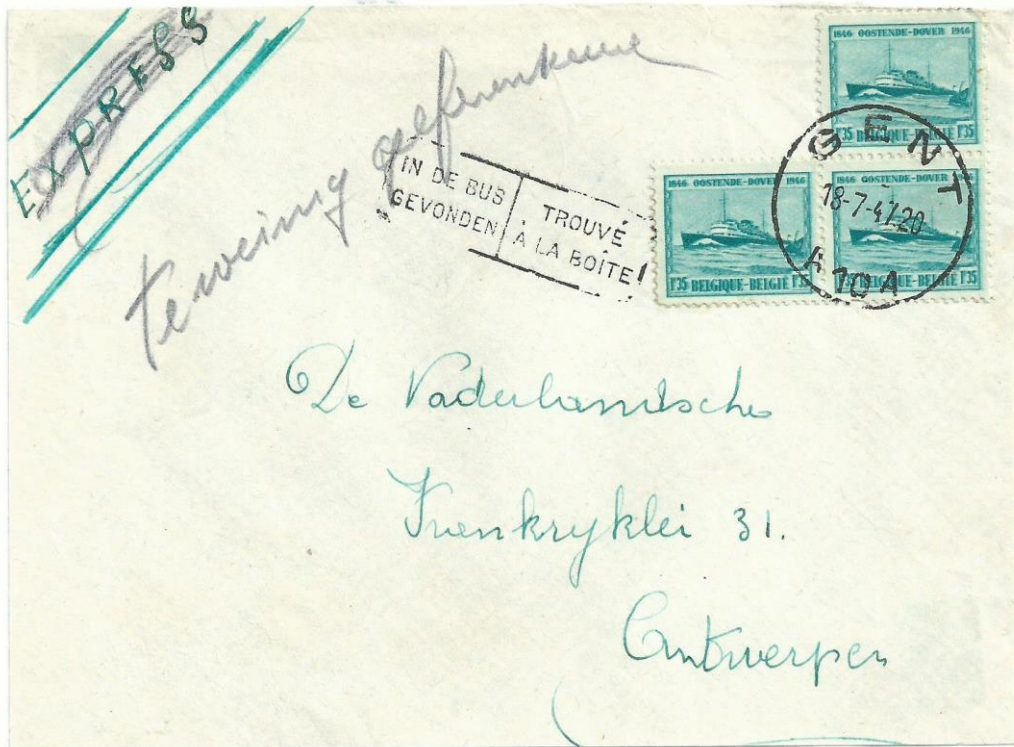 EXPRESS
te weinig gefrankeerd
IN DE BUS GEVONDEN
TROUVÉ À LA BOÎTE
1846 OOSTENDE-DOVER 1946
1F35 BELGIQUE-BELGIË 1F35
1846 OOSTENDE-DOVER 1946
1F35 BELGIQUE-BELGIË 1F35
1846 OOSTENDE-DOVER 1946
1F35 BELGIQUE-BELGIË 1F35
GENT
18-7-47-20
A 10 A
De Vaderlandsche
Frankryklei 31.
Antwerpen